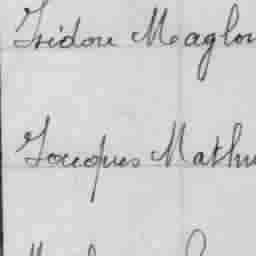 Isidore Maglo
Jacques Mathu